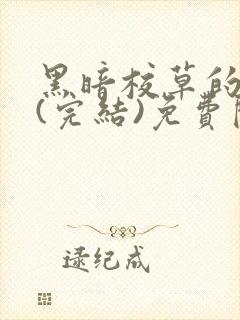 黑暗校草的
(完結)免費
逯纪成